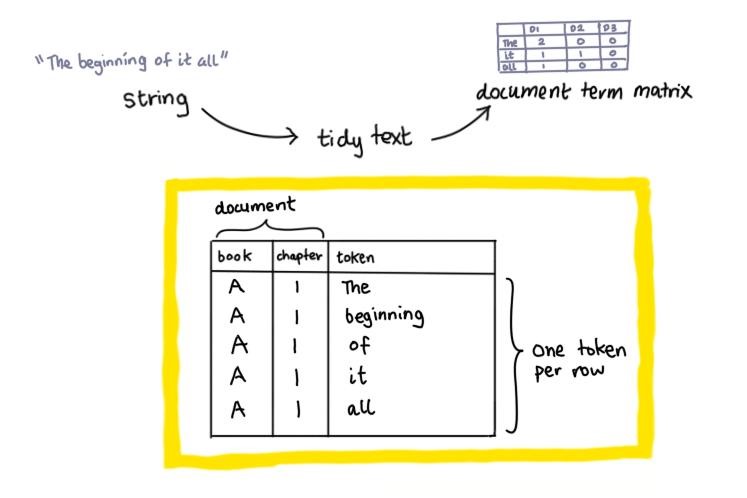 "The beginning of it all"
string
tidy text
D1 D2 D3
The 2 0 0
it 1 1 0
all 1 0 0
document term matrix
document
book chapter token
A 1 The
A 1 beginning
A 1 of
A 1 it
A 1 all
one token
per row